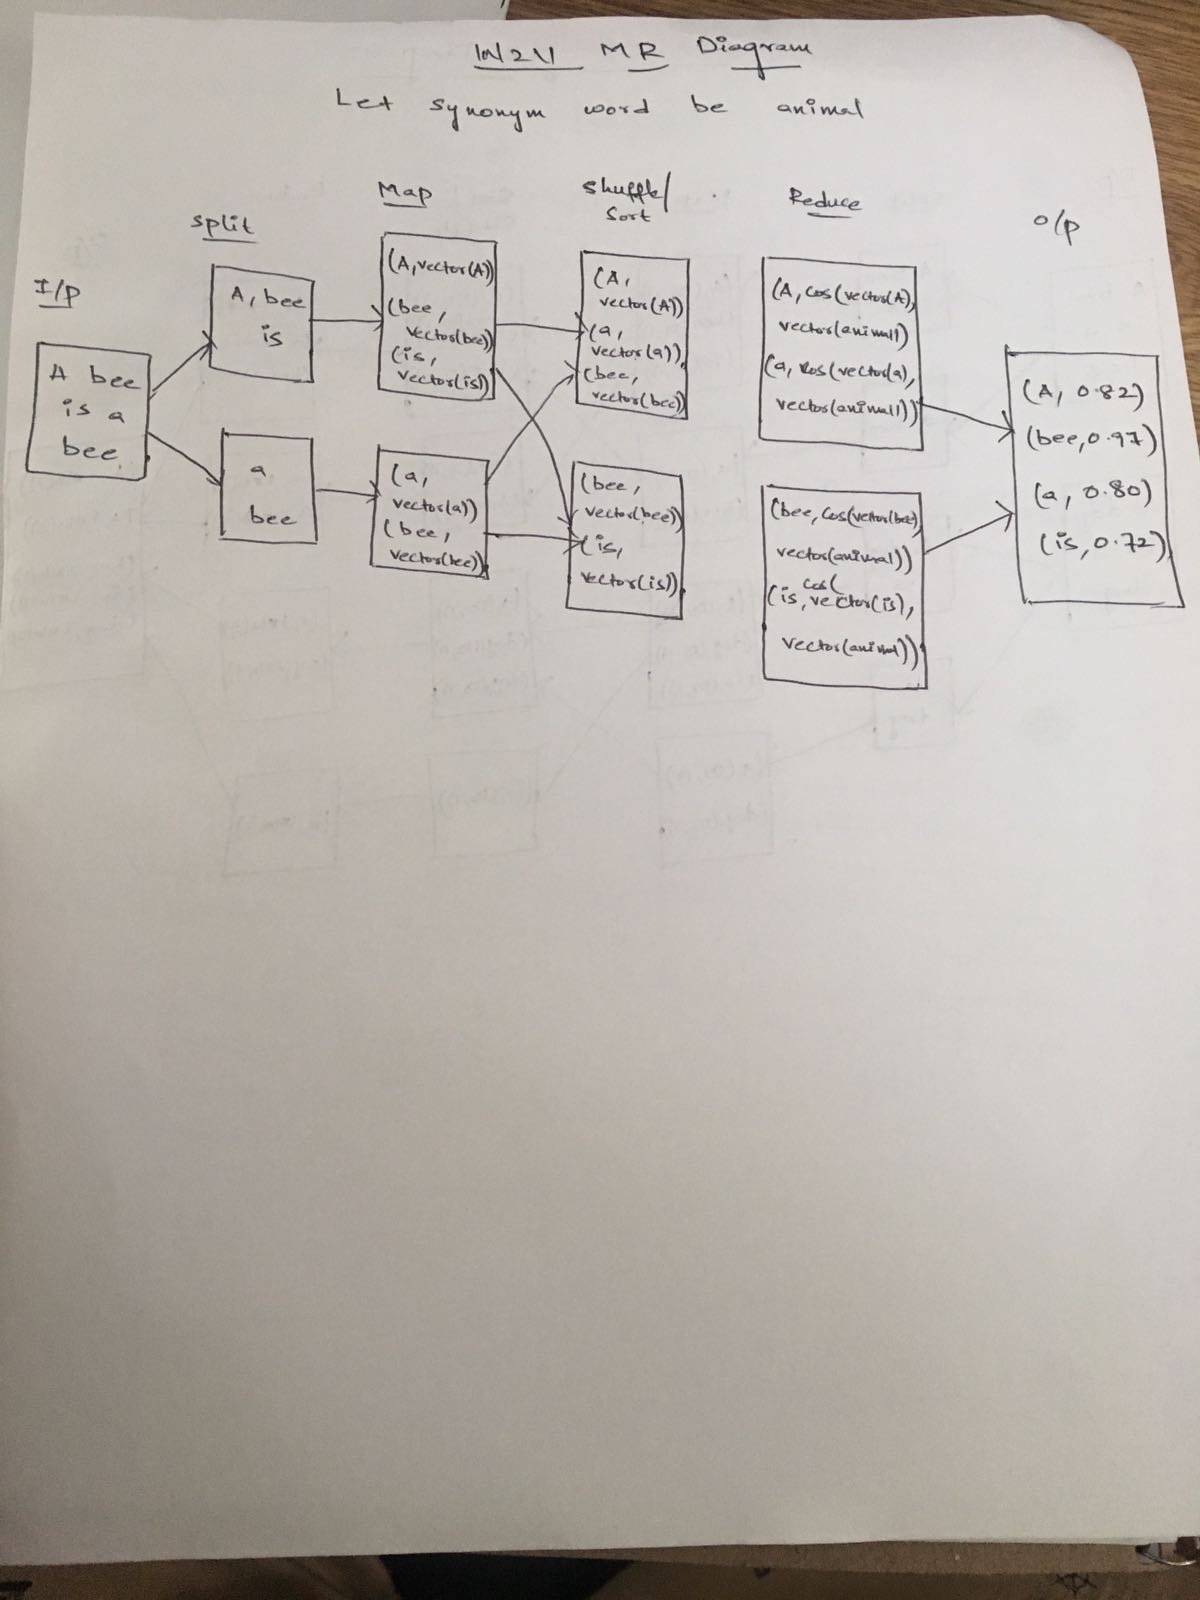 W2V MR Diagram
Let synonym word be animal
I/p
A bee
is a
bee
split
A, bee
is
a
bee
Map
(A, vector(A))
(bee,
vector(bee))
(is,
vector(is))
(a,
vector(a))
(bee,
vector(bee))
Shuffle/
Sort
(A,
vector(A))
(a,
vector(a))
(bee,
vector(bee))
(bee,
vector(bee))
(is,
vector(is))
Reduce
(A, cos(vector(A),
vector(animal))
(a, cos(vector(a),
vector(animal))
(bee, cos(vector(bee),
vector(animal))
cos(
(is, vector(is),
vector(animal))
o/p
(A, 0.82)
(bee, 0.97)
(a, 0.80)
(is, 0.72)